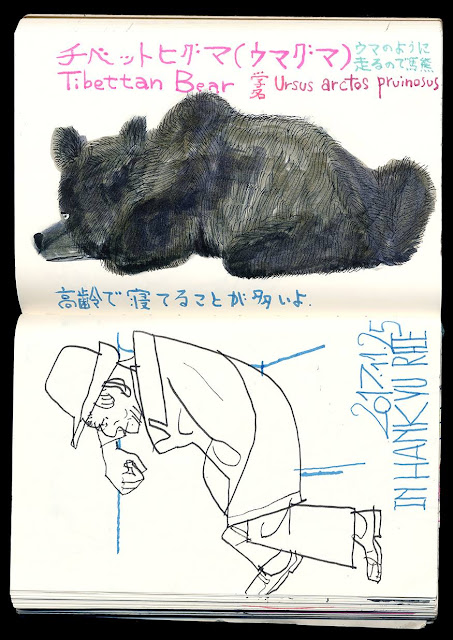 チベットヒグマ(ウマグマ)
ウマのように
走るので馬熊
Tibettan Bear
学名 Ursus arctos pruinosus
高齢で寝てることが多いよ.
2017.11.25
IN HANKYU RAIL